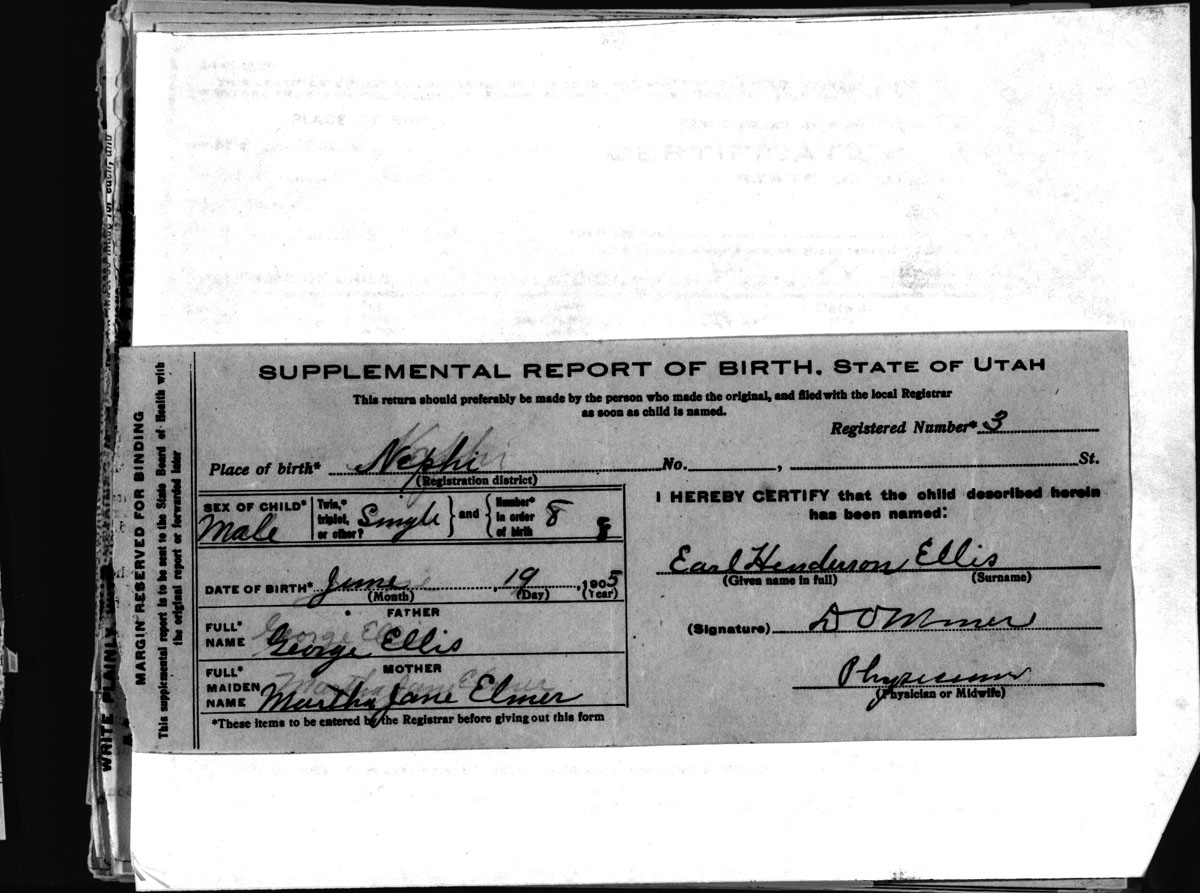 SUPPLEMENTAL REPORT OF BIRTH. STATE OF UTAH
This return should preferably be made by the person who made the original, and filed with the local Registrar
as soon as child is named.
Registered Number* 3
Place of birth* Nephi No. , St.
(Registration district)
SEX OF CHILD* Male
Twin,* triplet, or other? Single } and { Number* in order of birth 8 8
DATE OF BIRTH* June , 19 , 1905
(Month) (Day) (Year)
FATHER
FULL* NAME George Ellis
MOTHER
FULL* MAIDEN NAME Martha Jane Elmer
*These items to be entered by the Registrar before giving out this form
I HEREBY CERTIFY that the child described herein
has been named:
Earl Henderson Ellis
(Given name in full) (Surname)
(Signature)
Physician
(Physician or Midwife)
MARGIN RESERVED FOR BINDING
This supplemental report is to be sent to the State Board of Health with
the original report or forwarded later
WRITE PLAINLY
PLACE OF